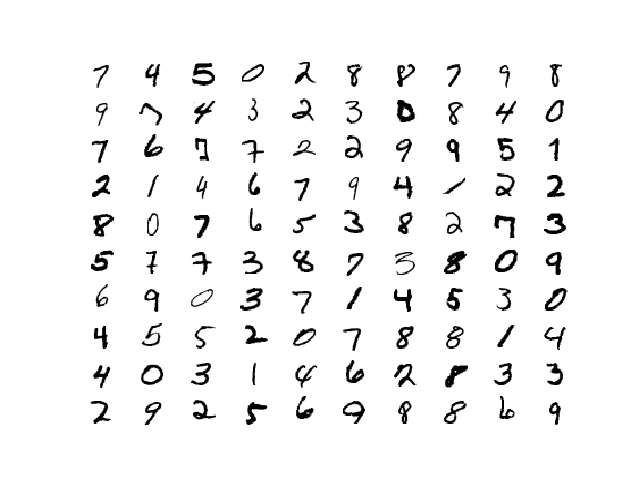 7 4 5 0 2 8 8 7 9 8
9 7 4 3 2 3 0 8 4 0
7 6 7 7 2 2 9 9 5 1
2 1 4 6 7 9 4 1 2 2
8 0 7 6 5 3 8 2 7 3
5 7 7 3 8 7 3 8 0 9
6 9 0 3 7 1 4 5 3 0
4 5 5 2 0 7 8 8 1 4
4 0 3 1 4 6 2 8 3 3
2 9 2 5 6 9 8 8 6 9